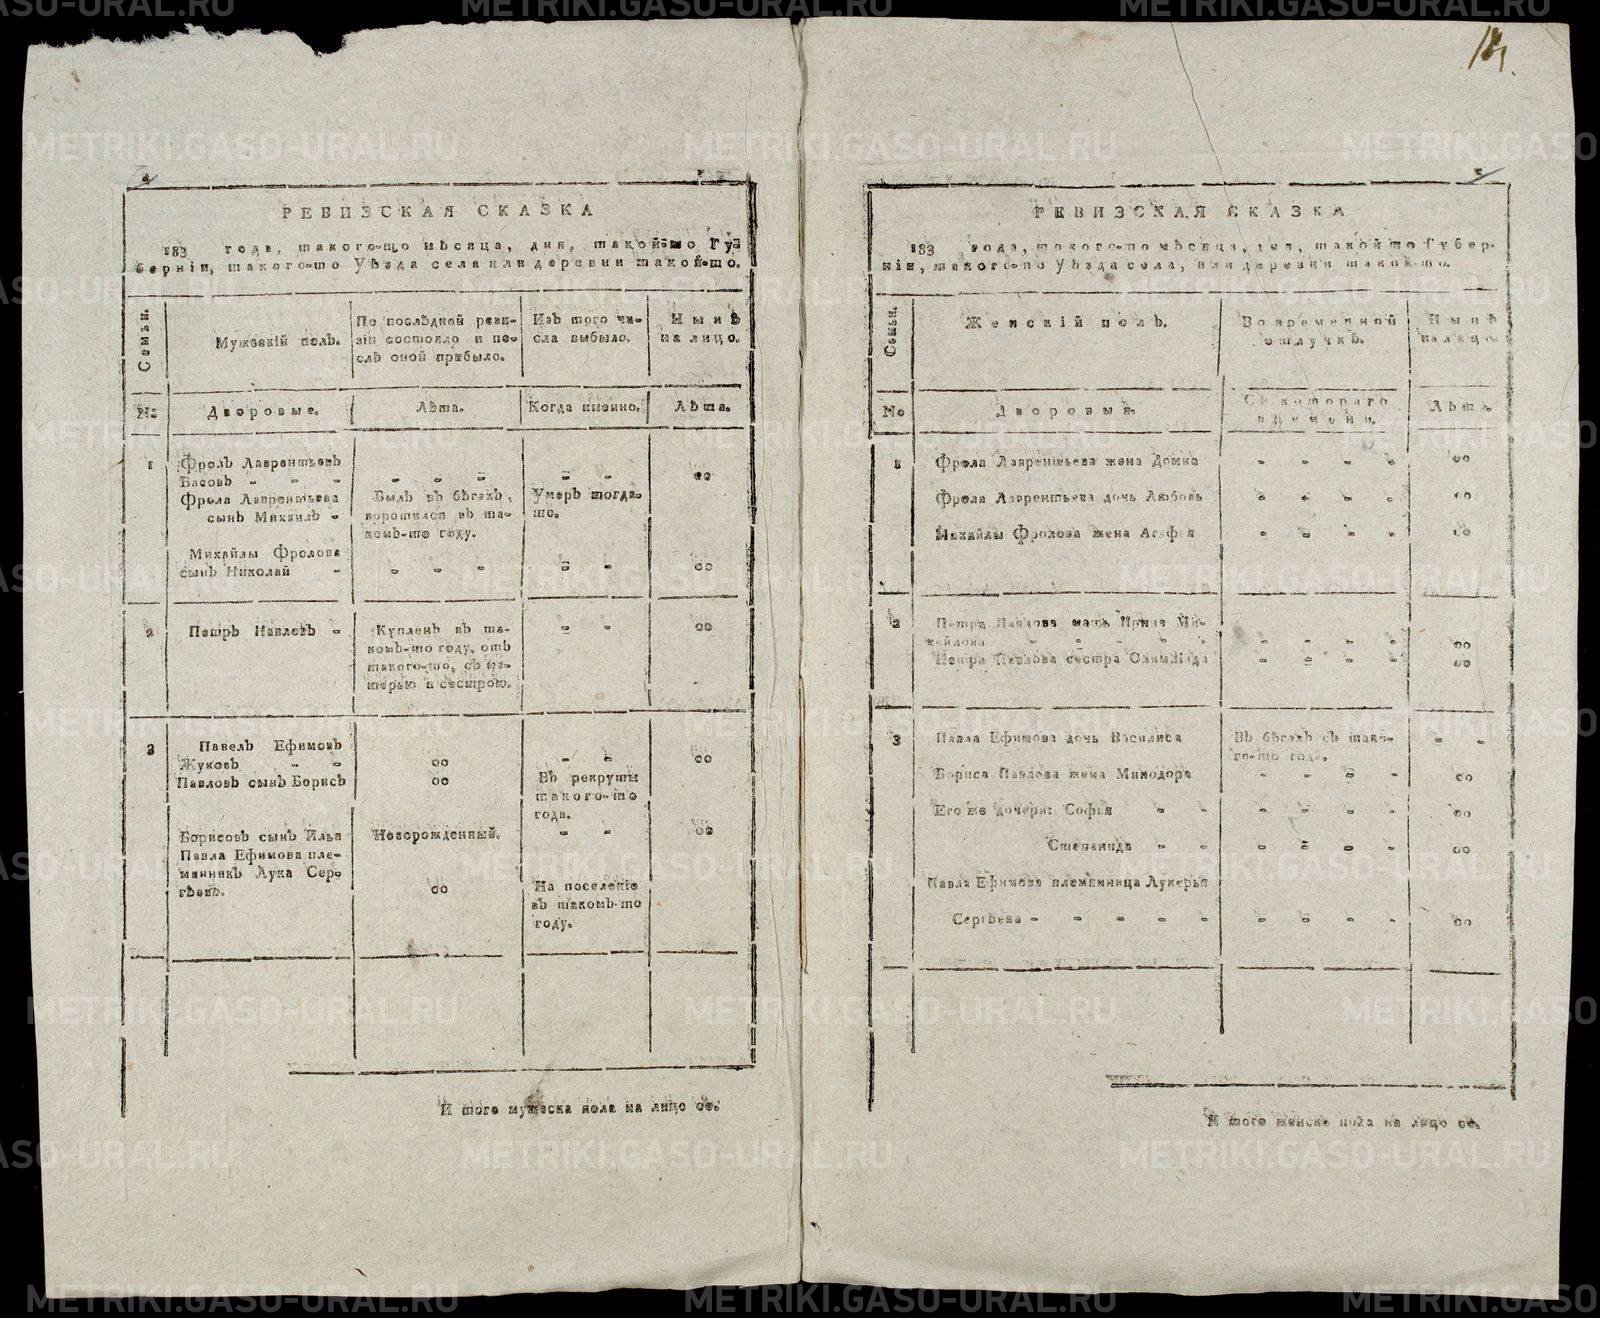 РЕВИЗСКАЯ СКАЗКА
183 года, такого-то мѣсяца, дня, такой-то Гу-
берніи, такого-то Уѣзда села или деревни такой-то.
Семьи.
Мужескій полъ.
По послѣдней реви-
зіи состояло и по-
слѣ оной прибыло.
Изъ того чи-
сла выбыло.
Нынѣ
на лицо.
№
Дворовые.
Лѣта.
Когда именно.
Лѣта.
1
Фролъ Лаврентьевъ
Басовъ - - -
- - -
- -
00
Фрола Лаврентьева
сынъ Михаилъ -
Былъ въ бѣгахъ,
воротился въ та-
комъ-то году.
Умеръ тогда-
то.
Михайлы Фролова
сынъ Николай -
- - -
- -
00
2
Петръ Павловъ -
Купленъ въ та-
комъ-то году, отъ
такого-то, съ ма-
терью и сестрою.
- -
00
3
Павелъ Ефимовъ
Жуковъ - -
00
- -
00
Павловъ сынъ Борисъ
00
Въ рекруты
такого-то
года.
Борисовъ сынъ Илья
Новорожденный.
- -
00
Павла Ефимова пле-
мянникъ Лука Сер-
гѣевъ.
00
На поселеніе
въ такомъ-то
году.
И того мужеска пола на лицо 00.
РЕВИЗСКАЯ СКАЗКА
183 года, такого-то мѣсяца, дня, такой то Губер-
ніи, такого-то Уѣзда села, или деревни такой-то.
Семьи.
Женскій полъ.
Во временной
отлучкѣ.
Нынѣ
на лицо.
№
Дворовыя.
Съ котораго
времени.
Лѣта.
1
Фрола Лаврентьева жена Домна
- - - -
00
Фрола Лаврентьева дочь Любовь
- - - -
00
Михайлы Фролова жена Агафья
- - - -
00
2
Петра Павлова мать Ирина Ми-
хайлова - - - -
- - - -
00
Петра Павлова сестра Олимпіада
- - - -
00
3
Павла Ефимова дочь Василиса
Въ бѣгахъ съ тако-
го-то года.
- -
Бориса Павлова жена Минодора
- - - -
00
Его же дочери: Софья - -
- - - -
00
Степанида - -
- - - -
00
Павла Ефимова племянница Лукерья
Сергѣева - - - - -
- - - -
00
И того женска пола на лицо 00.
METRIKI.GASO-URAL.RU